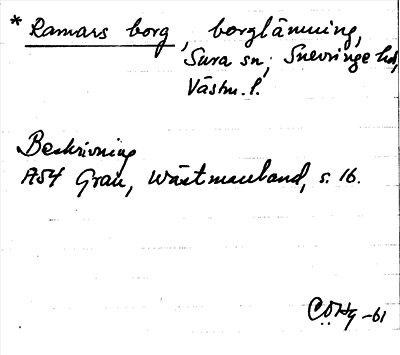 * Ramars borg, borglämning,
Sura sn, Snevringe hd,
Västm. l.
Beskrivning
A54 Grau, Wästmanland, s. 16.
CÖHg -61